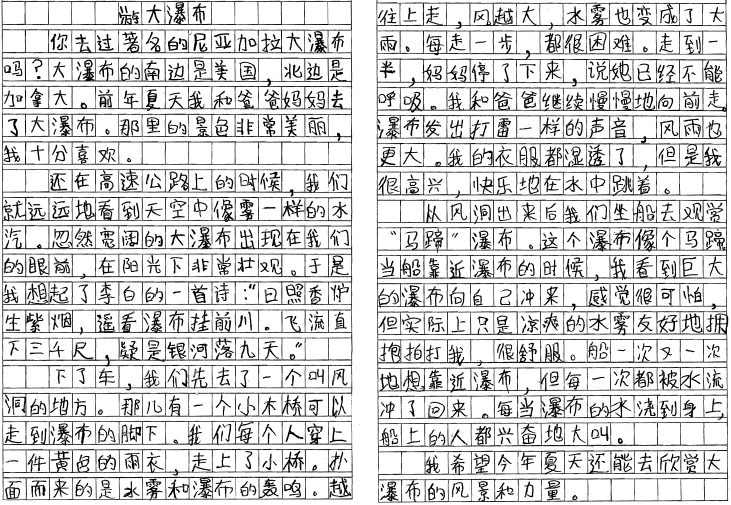 游大瀑布
你去过著名的尼亚加拉大瀑布
吗？大瀑布的南边是美国，北边是
加拿大。前年夏天我和爸爸妈妈去
了大瀑布。那里的景色非常美丽，
我十分喜欢。
还在高速公路上的时候，我们
就远远地看到天空中像雾一样的水
汽。忽然宽阔的大瀑布出现在我们
的眼前，在阳光下非常壮观。于是
我想起了李白的一首诗：“日照香炉
生紫烟，遥看瀑布挂前川。飞流直
下三千尺，疑是银河落九天。”
下了车，我们先去了一个叫风
洞的地方。那儿有一个小木桥可以
走到瀑布的脚下。我们每个人穿上
一件黄色的雨衣，走上了小桥。扑
面而来的是水雾和瀑布的轰鸣。越
往上走，风越大，水雾也变成了大
雨。每走一步，都很困难。走到一
半，妈妈停了下来，说她已经不能
呼吸。我和爸爸继续慢慢地向前走。
瀑布发出打雷一样的声音，风雨也
更大。我的衣服都湿透了，但是我
很高兴，快乐地在水中跳着。
从风洞出来后我们坐船去观赏
“马蹄”瀑布。这个瀑布像个马蹄
当船靠近瀑布的时候，我看到巨大
的瀑布向自己冲来，感觉很可怕，
但实际上只是凉爽的水雾友好地拥
抱拍打我，很舒服。船一次又一次
地想靠近瀑布，但每一次都被水流
冲了回来。每当瀑布的水浇到身上，
船上的人都兴奋地大叫。
我希望今年夏天还能去欣赏大
瀑布的风景和力量。